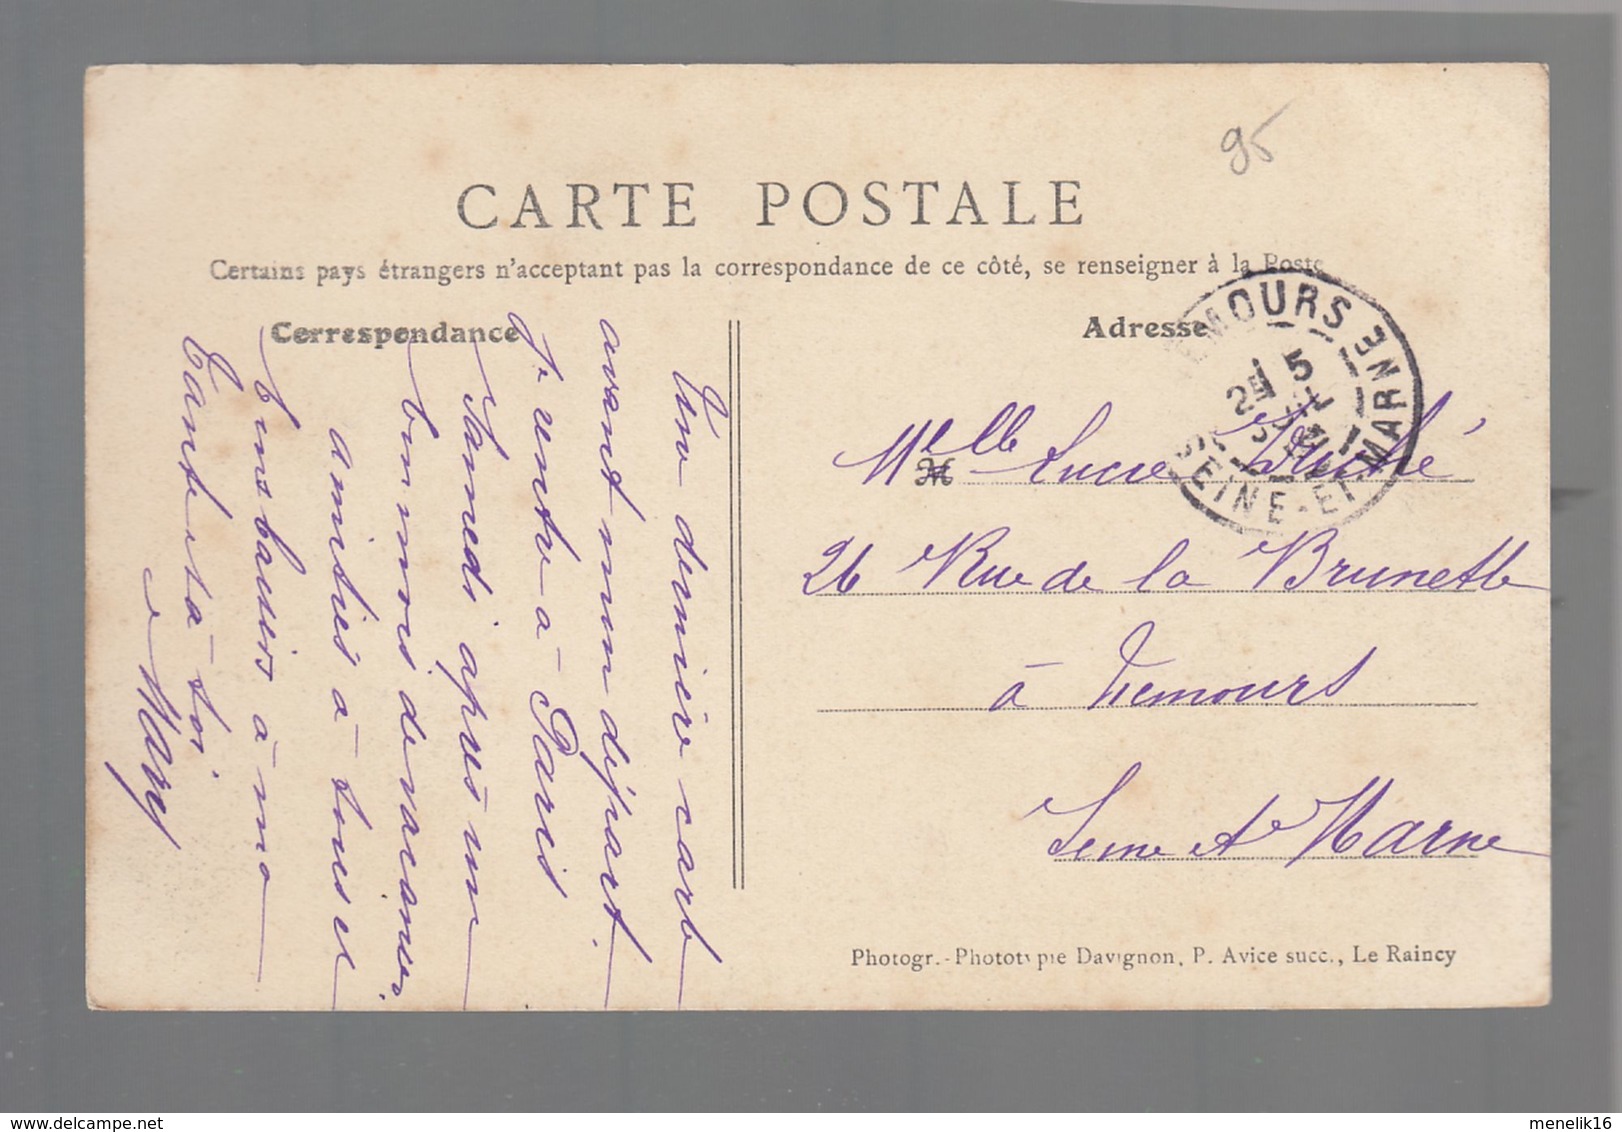 95
CARTE POSTALE
Certains pays étrangers n'acceptant pas la correspondance de ce côté, se renseigner à la Poste
Correspondance
Adresse
Une dernière carte
avant mon départ.
Je rentre à Paris
Samedi après un
bon mois de vacances.
amitiés à tous et
bons baisers à ma
Tante et à toi
Mary
NEMOURS
SEINE-ET-MARNE
Melle Lucie
M
26 Rue de la Brunette
à Nemours
Seine et Marne
Photogr.-Phototypie Davignon, P. Avice succ., Le Raincy
delcampe.net
menelik16